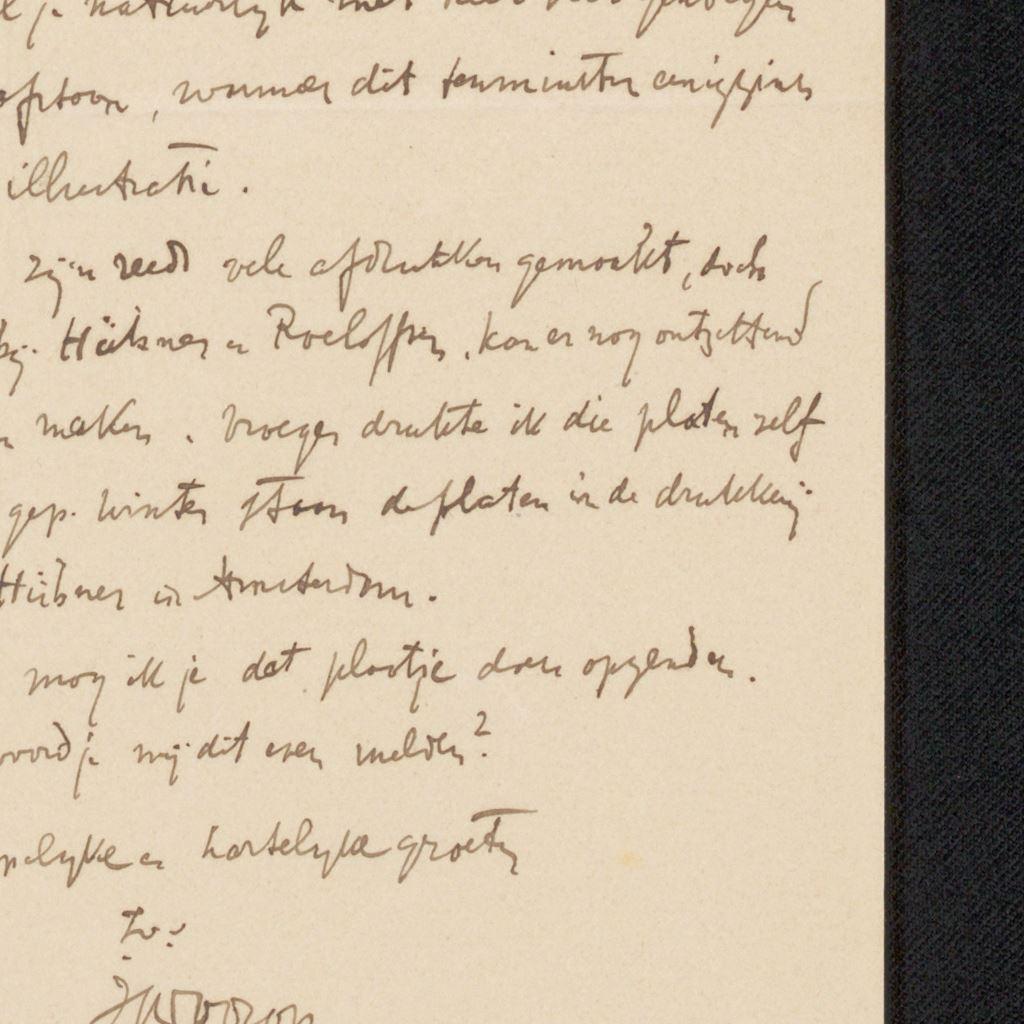 je natuurlijk met
afstaan, wanneer dit tenminste eenigzins
illustratie.
zijn reeds vele afdrukken gemaakt, doch
bij Hübner en Roeloffzen. kan er nog ontzettend
maken. Vroeger drukte ik die platen zelf
gep. winter staan de platen in de drukkerij
Hübner in Amsterdam.
mag ik je dat plaatje doen opzenden.
je mij dit even melden?
en hartelijke groeten
tov